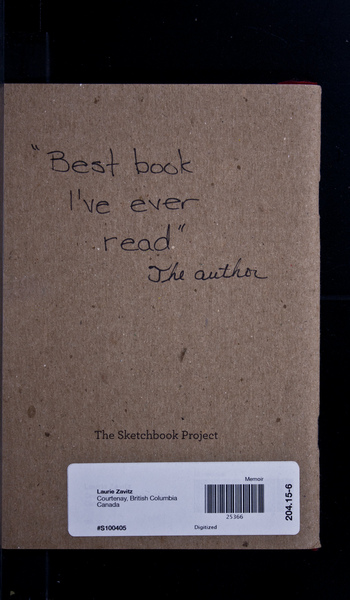 "Best book
I've ever
read"
The author
The Sketchbook Project
Memoir
Laurie Zavitz
Courtenay, British Columbia
Canada
25366
204.15-6
#S100405
Digitized